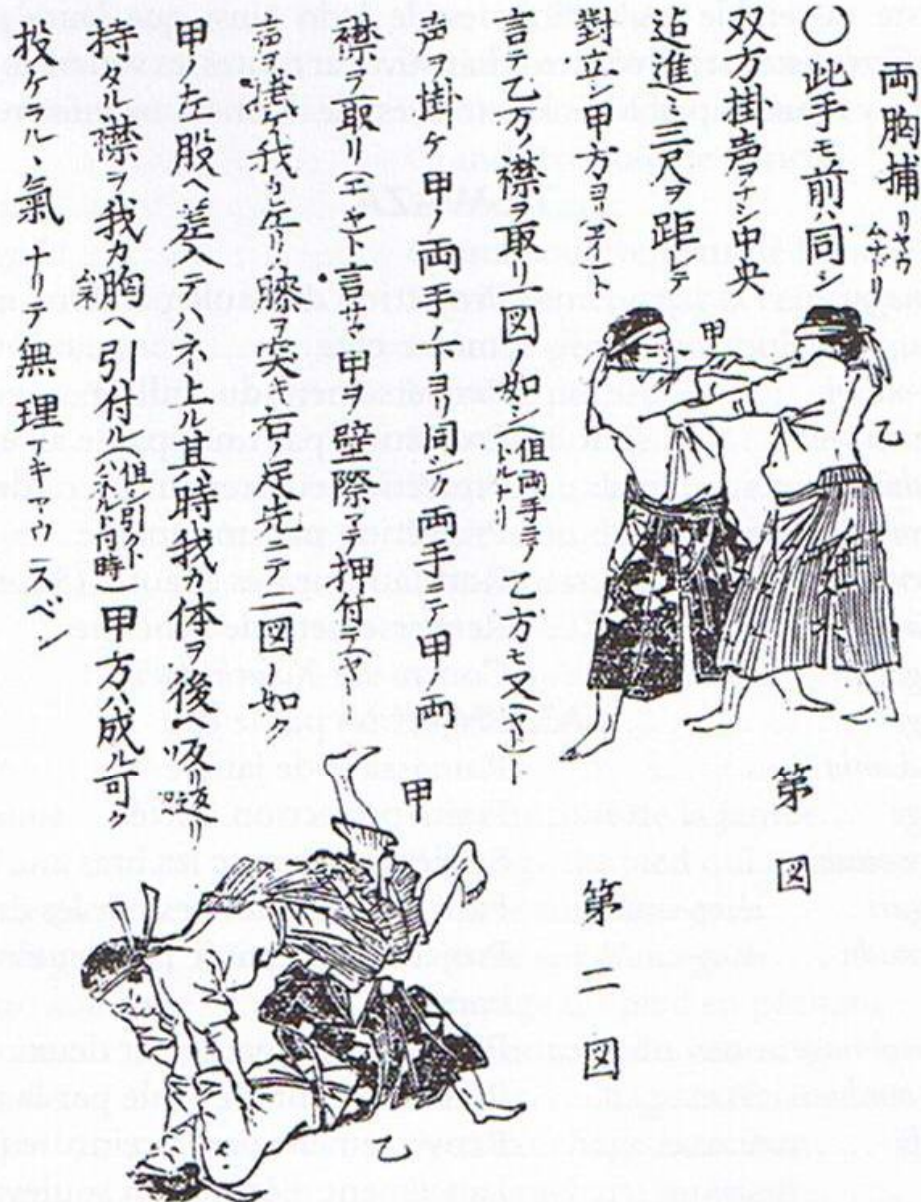 両胸捕リヤウムナドリ
〇此手モ前ハ同シ
双方掛声ヲナシ中央
迠進ミ三尺ヲ距テ
對立シ甲方ヨリ(エイ)ト
言テ乙方ノ襟ヲ取リ一図ノ如シ(但シ両手ニテトルナリ)乙方モ又(ハット)
声ヲ掛ケ甲ノ両手ノ上ヨリ同シク両手ニテ甲ノ両
襟ヲ取リ(エイヤット)言サマ甲ヲ壁際マテ押付(エイヤット)
言 我カ左リ膝ヲ突キ右足先ニテ二図ノ如ク
甲ノ右股ヘ差入テハネトル其時我カ体ヲ後ヘ
持タル襟ヲ我カ胸ヘ引付ル(但シ引ト ハネルト同時)甲方ハ成ル可ク
投ケル、氣ナリテ無理ニ ベシ
甲
乙
第一図
第二図
甲
乙